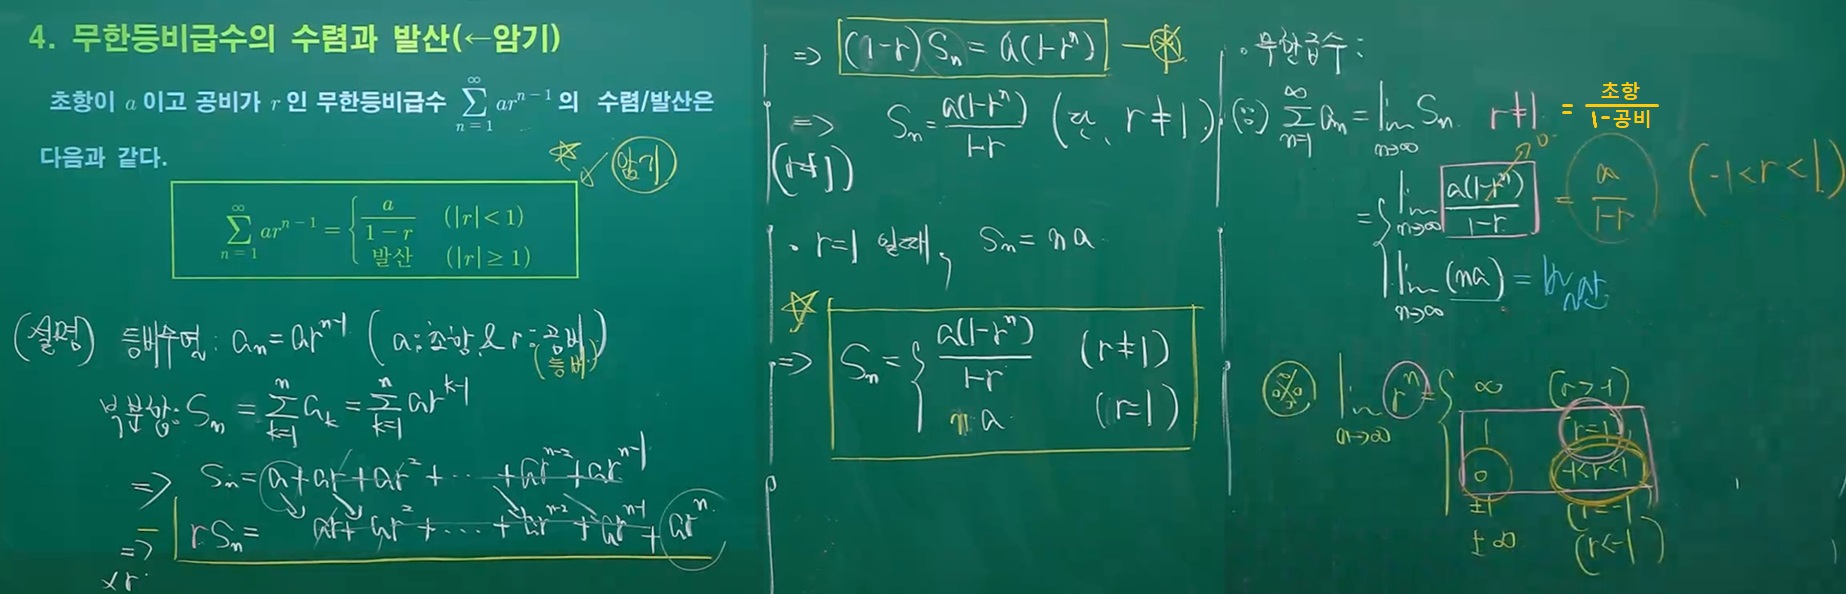 4. 무한등비급수의 수렴과 발산(←암기)
초항이 a 이고 공비가 r 인 무한등비급수 ∞ ∑ n=1 ar^{n-1} 의 수렴/발산은
다음과 같다.
☆ ✓ 암기
∞ ∑ n=1 ar^{n-1} = { a/(1-r) (|r|<1)
발산 (|r|≥1)
(설명) 등비수열: a_n = ar^{n-1} (a:초항 & r:공비)
(등비)
부분합: S_n = ∑_{k=1}^{n} a_k = ∑_{k=1}^{n} ar^{k-1}
=> S_n = a + ar + ar² + ⋯ + ar^{n-2} + ar^{n-1}
- => rS_n = ar + ar² + ⋯ + ar^{n-2} + ar^{n-1} + ar^n
×r
=> (1-r)S_n = a(1-r^n) — ※
=> S_n = a(1-r^n)/(1-r) (단, r≠1)
(r≠1)
· r=1 일때, S_n = na
☆
=> S_n = { a(1-r^n)/(1-r) (r≠1)
na (r=1)
· 무한급수:
∑_{n=1}^{∞} a_n = lim_{n→∞} S_n r≠1 = 초항/(1-공비)
0
= { lim_{n→∞} a(1-r^n)/(1-r) = a/(1-r) (-1<r<1)
lim_{n→∞} (na) = 발산
※ lim_{n→∞} r^n = { ∞ (r>1)
1 (r=1)
0 -1<r<1
±1 (r=-1
±∞ (r<-1)